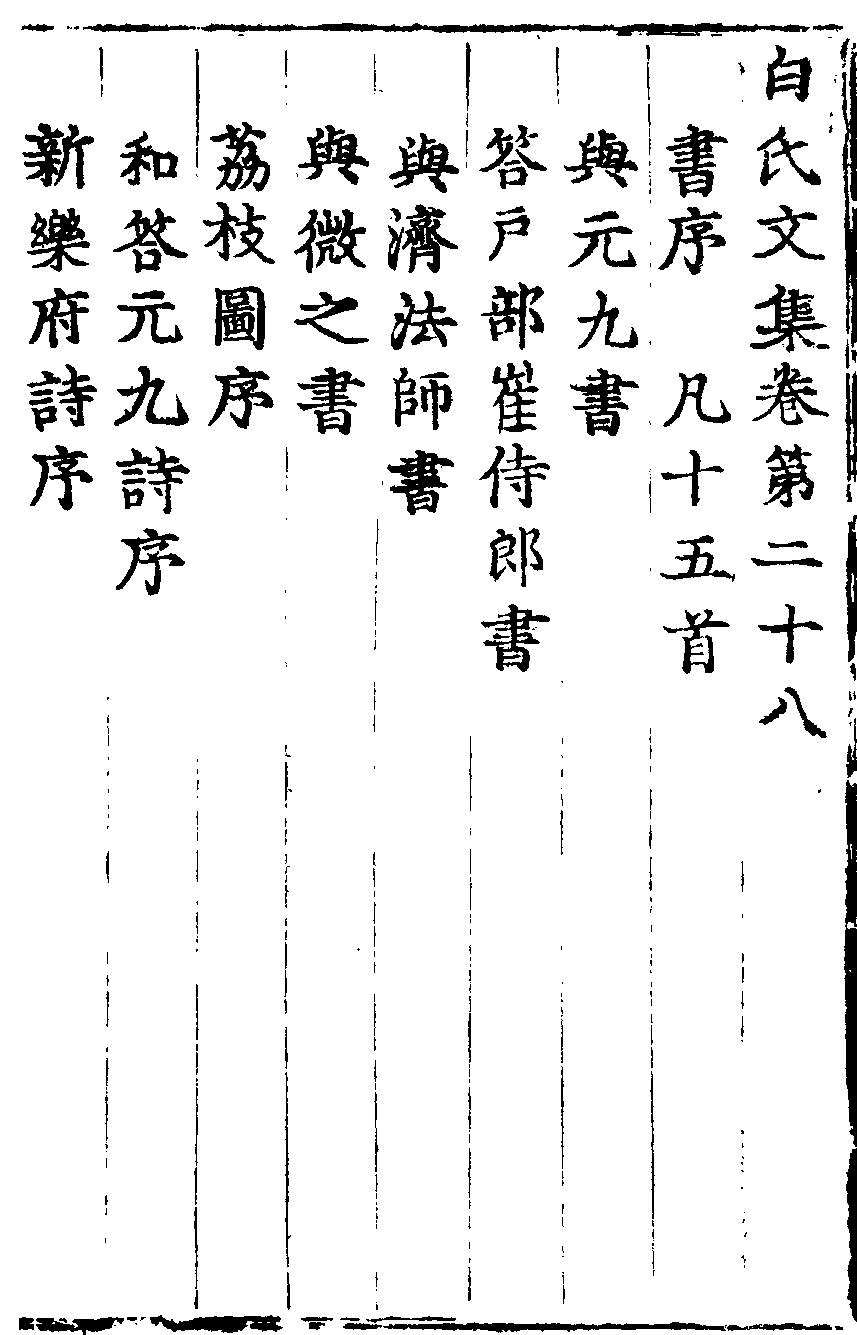 白氏文集卷第二十八
書序　凡十五首
與元九書
答戶部崔侍郎書
與濟法師書
與微之書
荔枝圖序
和答元九詩序
新樂府詩序